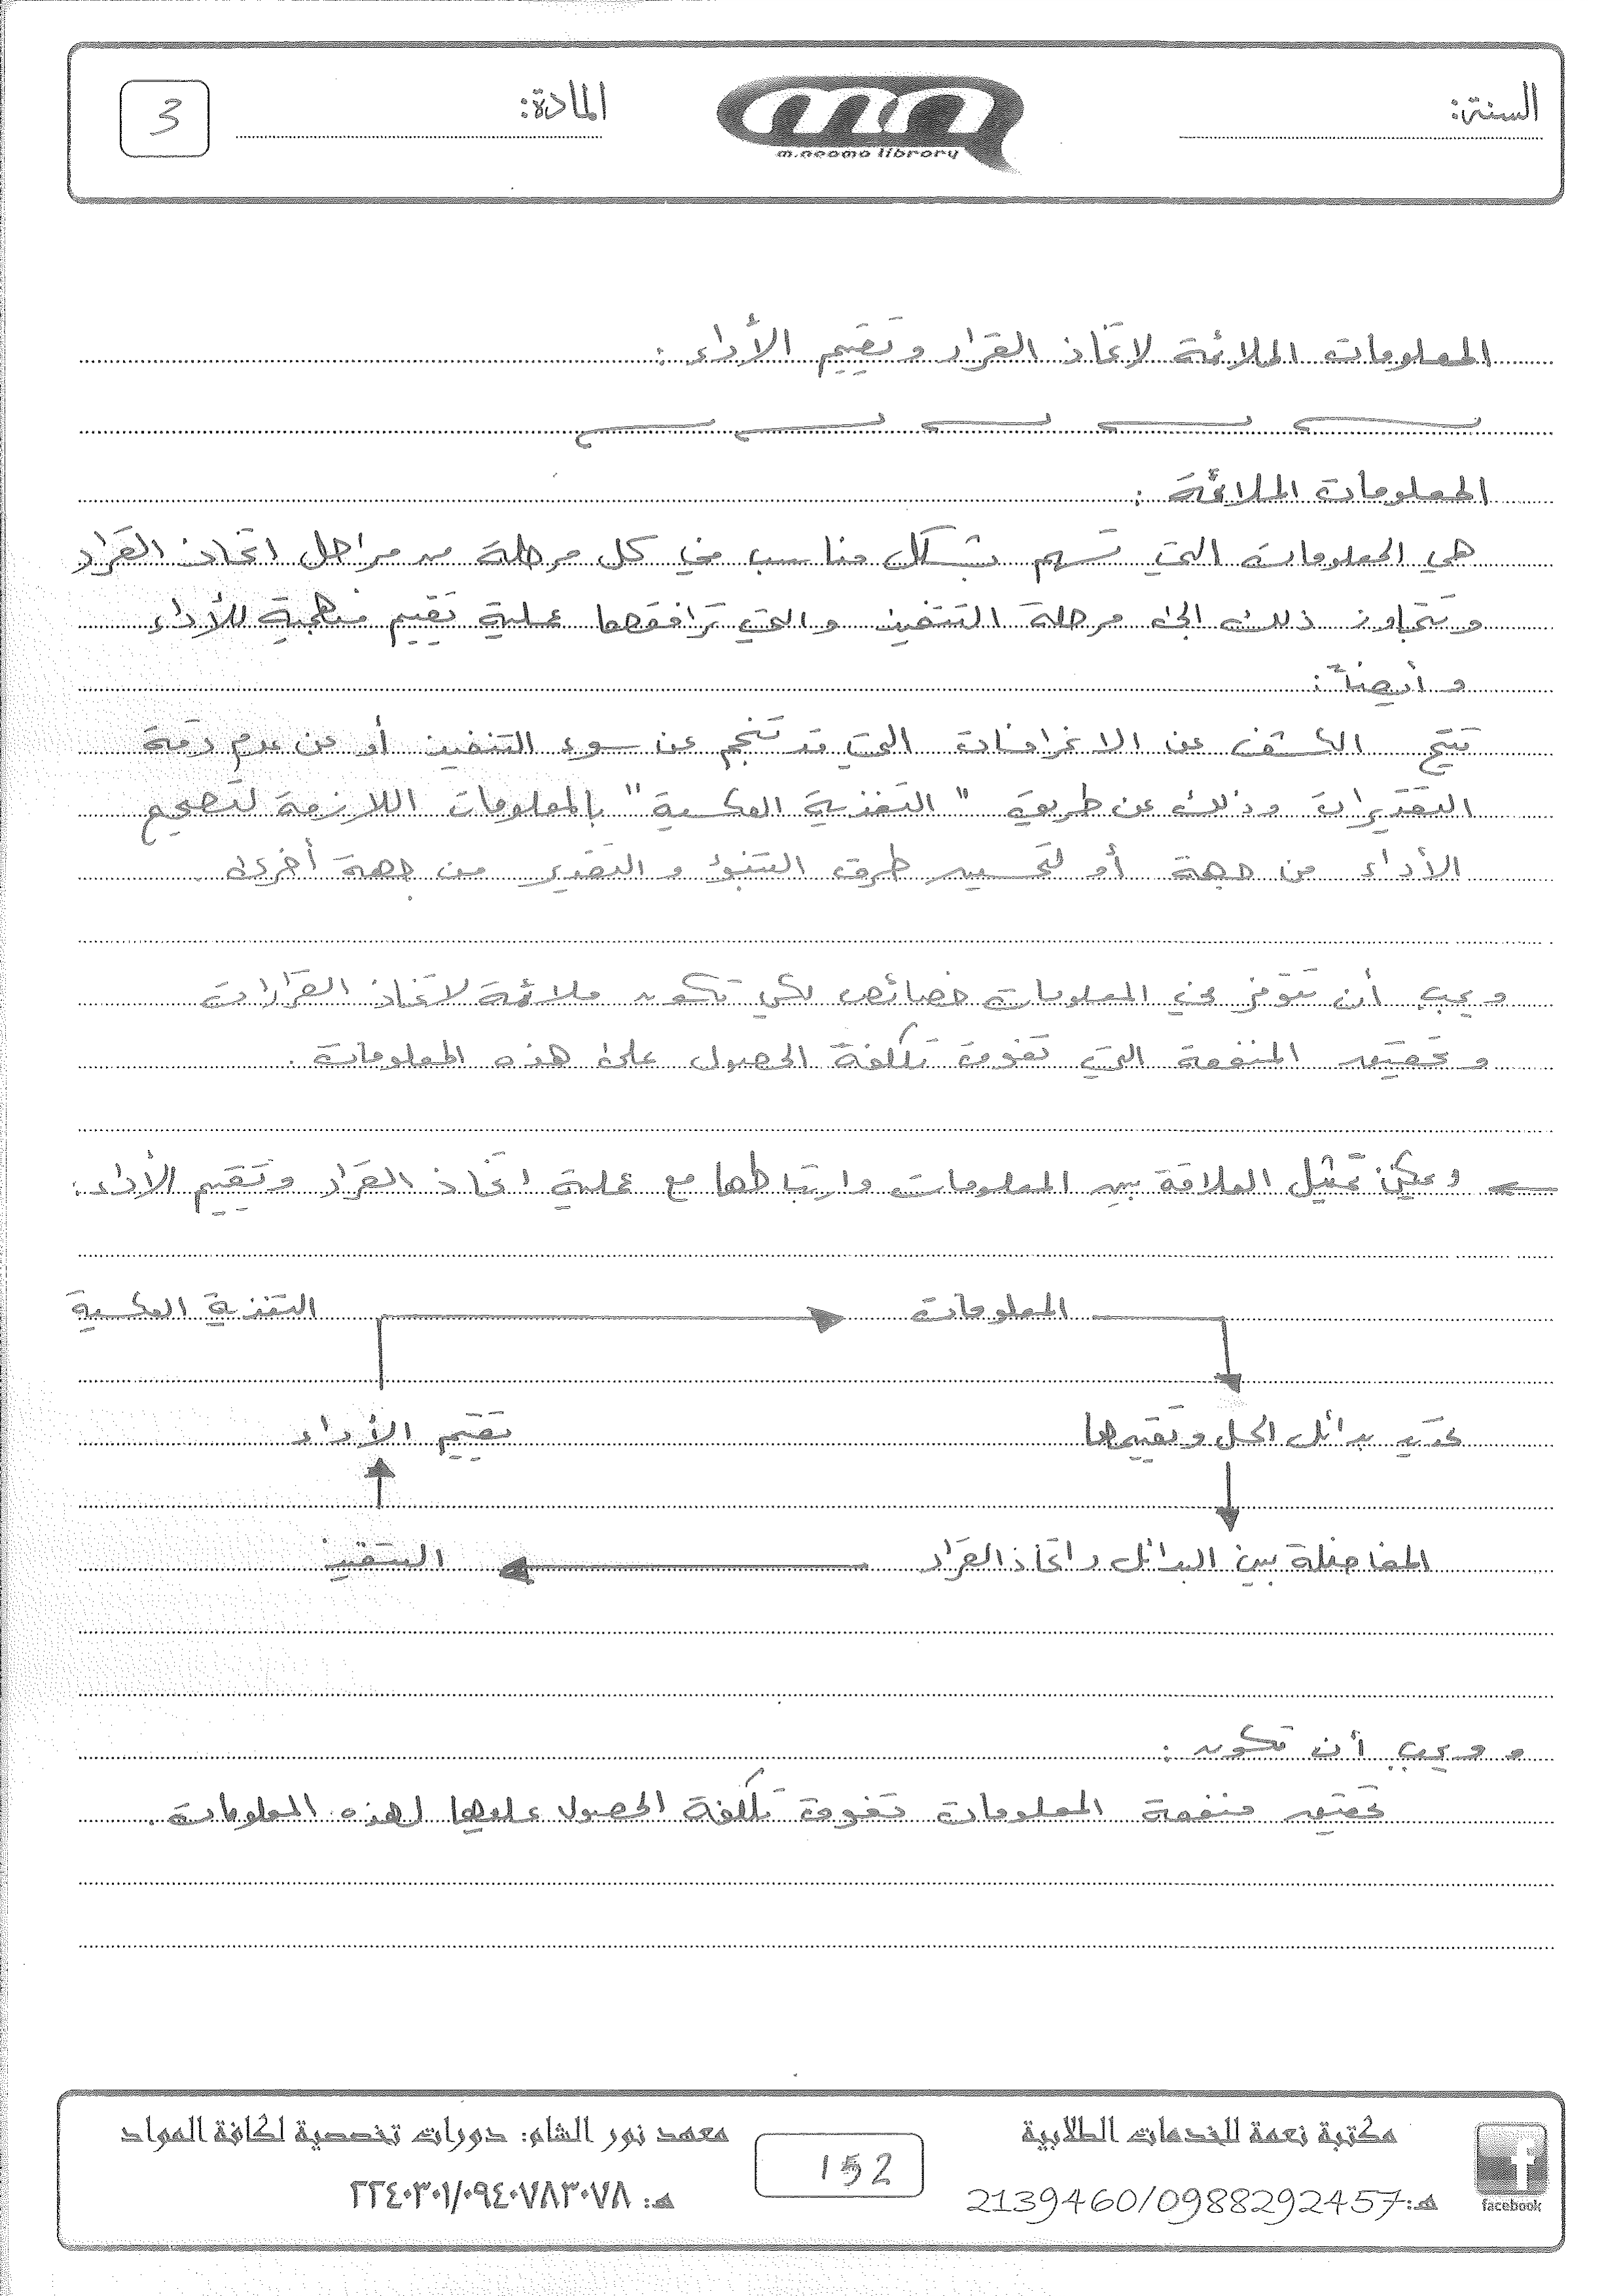 السنة:
m.neama library
المادة:
3
المعلومات الملائمة لاتخاذ القرار وتقييم الأداء :
المعلومات الملائمة :
هي المعلومات التي تسهم بشكل مناسب في كل مرحلة من مراحل اتخاذ القرار
وتتجاوز ذلك إلى مرحلة التنفيذ والتي ترافقها عملية تقييم منهجية للأداء
وأيضاً :
تتيح الكشف عن الانحرافات التي قد تنجم عن سوء التنفيذ أو عن عدم دقة
التقديرات وذلك عن طريق " التغذية العكسية " بالمعلومات اللازمة لتصحيح
الأداء من جهة أو لتحسين طرق التنبؤ و التقدير من جهة أخرى .
ويجب أن تتوفر في المعلومات خصائص لكي تكون ملائمة لاتخاذ القرارات
و تحقيق المنفعة التي تفوق تكلفة الحصول على هذه المعلومات .
ويمكن تمثيل العلاقة بين المعلومات وارتباطها مع عملية اتخاذ القرار وتقييم الأداء :
المعلومات
التغذية العكسية
تحديد بدائل الحل وتقييمها
تقييم الأداء
المفاضلة بين البدائل واتخاذ القرار
التنفيذ
و ويجب أن تكون :
تحقيق منفعة المعلومات تفوق تكلفة الحصول عليها لهذه المعلومات .
مكتبة نعمة للخدمات الطلابية
هـ: 2139460/0988292457
facebook
152
معهد نور الشام: دورات تخصصية لكافة المواد
هـ: ٢٢٤٠٣٠١/٠٩٤٠٧٨٣٠٧٨